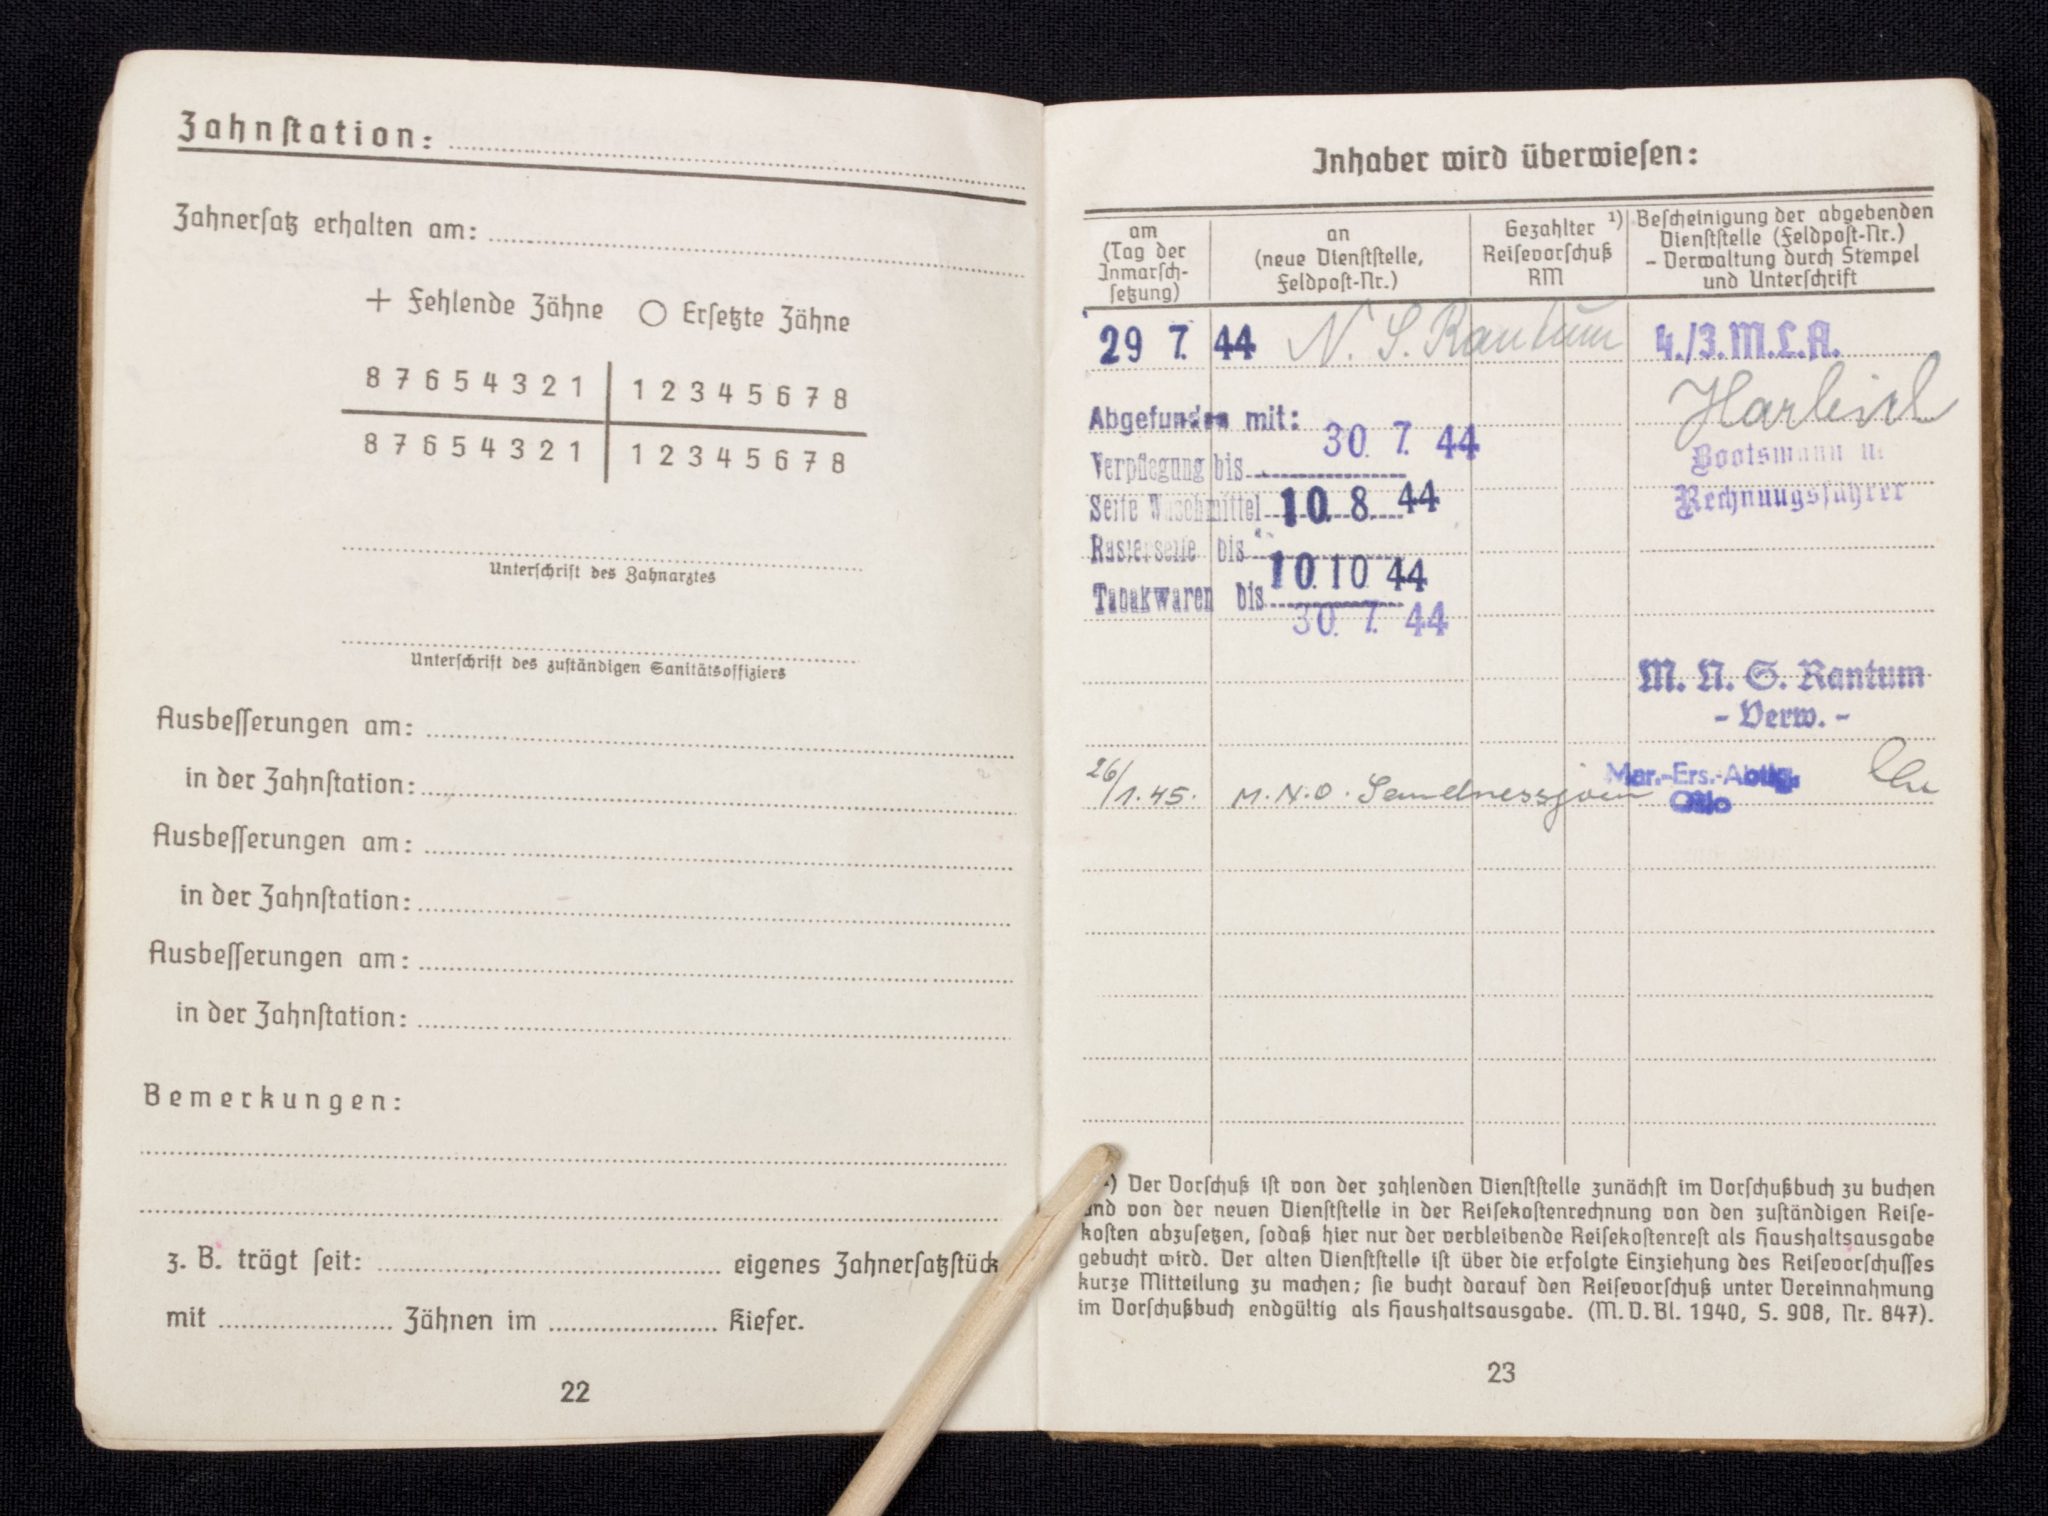 Zahnstation:
Zahnersatz erhalten am:
+ Fehlende Zähne ○ Ersetzte Zähne
8 7 6 5 4 3 2 1 1 2 3 4 5 6 7 8
8 7 6 5 4 3 2 1 1 2 3 4 5 6 7 8
Unterschrift des Zahnarztes
Unterschrift des zuständigen Sanitätsoffiziers
Ausbesserungen am:
in der Zahnstation:
Ausbesserungen am:
in der Zahnstation:
Ausbesserungen am:
in der Zahnstation:
Bemerkungen:
z. B. trägt seit: eigenes Zahnersatzstück
mit Zähnen im Kiefer.
22
Inhaber wird überwiesen:
am
(Tag der
Inmarsch-
setzung)
an
(neue Dienststelle,
Feldpost-Nr.)
Gezahlter ¹)
Reisevorschuß
RM
Bescheinigung der abgebenden
Dienststelle (Feldpost-Nr.)
- Verwaltung durch Stempel
und Unterschrift
29 7. 44 N. S. Rantum 4./3. M.L.A.
Abgefunden mit:
Verpflegung bis 30. 7. 44
Bootsmann u.
Seife Waschmittel 10. 8. 44
Rechnungsführer
Rasierseife bis 10. 10 44
Tabakwaren bis 30. 7. 44
M. N. S. Rantum
- Verw. -
26/1. 45. M. N. O. Sandnessjoen Mar.-Ers.-Abtlg.
Oslo
¹) Der Vorschuß ist von der zahlenden Dienststelle zunächst im Vorschußbuch zu buchen
und von der neuen Dienststelle in der Reisekostenrechnung von den zuständigen Reise-
kosten abzusetzen, sodaß hier nur der verbleibende Reisekostenrest als Haushaltsausgabe
gebucht wird. Der alten Dienststelle ist über die erfolgte Einziehung des Reisevorschusses
kurze Mitteilung zu machen; sie bucht darauf den Reisevorschuß unter Vereinnahmung
im Vorschußbuch endgültig als Haushaltsausgabe. (M. V. Bl. 1940, S. 908, Nr. 847).
23